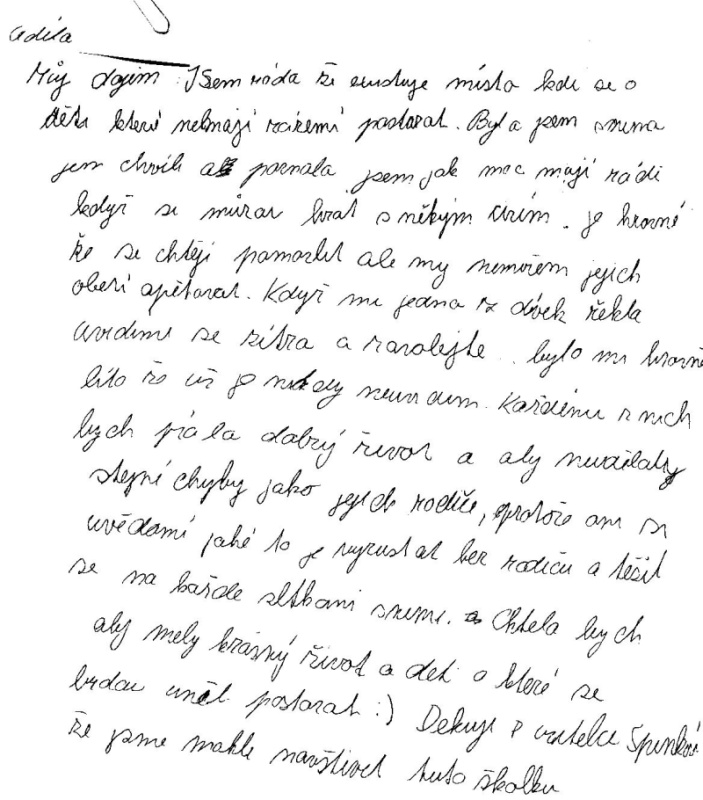 adéla
Můj dojem : JSem ráda že existuje místo kde se o
děti které nemají zázemí postarat. Byla jsem snima
jen chvíli a poznala jsem jak moc mají rádi
když si můžou hrat s někým cizím. je hrozné
že se chtějí pomazlit ale my nemožem jejich
obětí opětovat. Když mi jedna z dívek řekla
uvidime se zítra a zavolejte.. bylo mi hrozně
líto že už je nikdy neuvidim. Každému z nich
bych přála dobrý život a aby neudělaly
stejné chyby jako jejich rodiče, protože oni si
uvědomí jaké to je vyrustat bez rodiču a těšit
se na každe setkani snimi. Chtela bych
aby mely krásný život a deti o které se
budou umět postarat :) Dekuji P učitelce Špinkové
že jsme mohle navštivet tuto školku